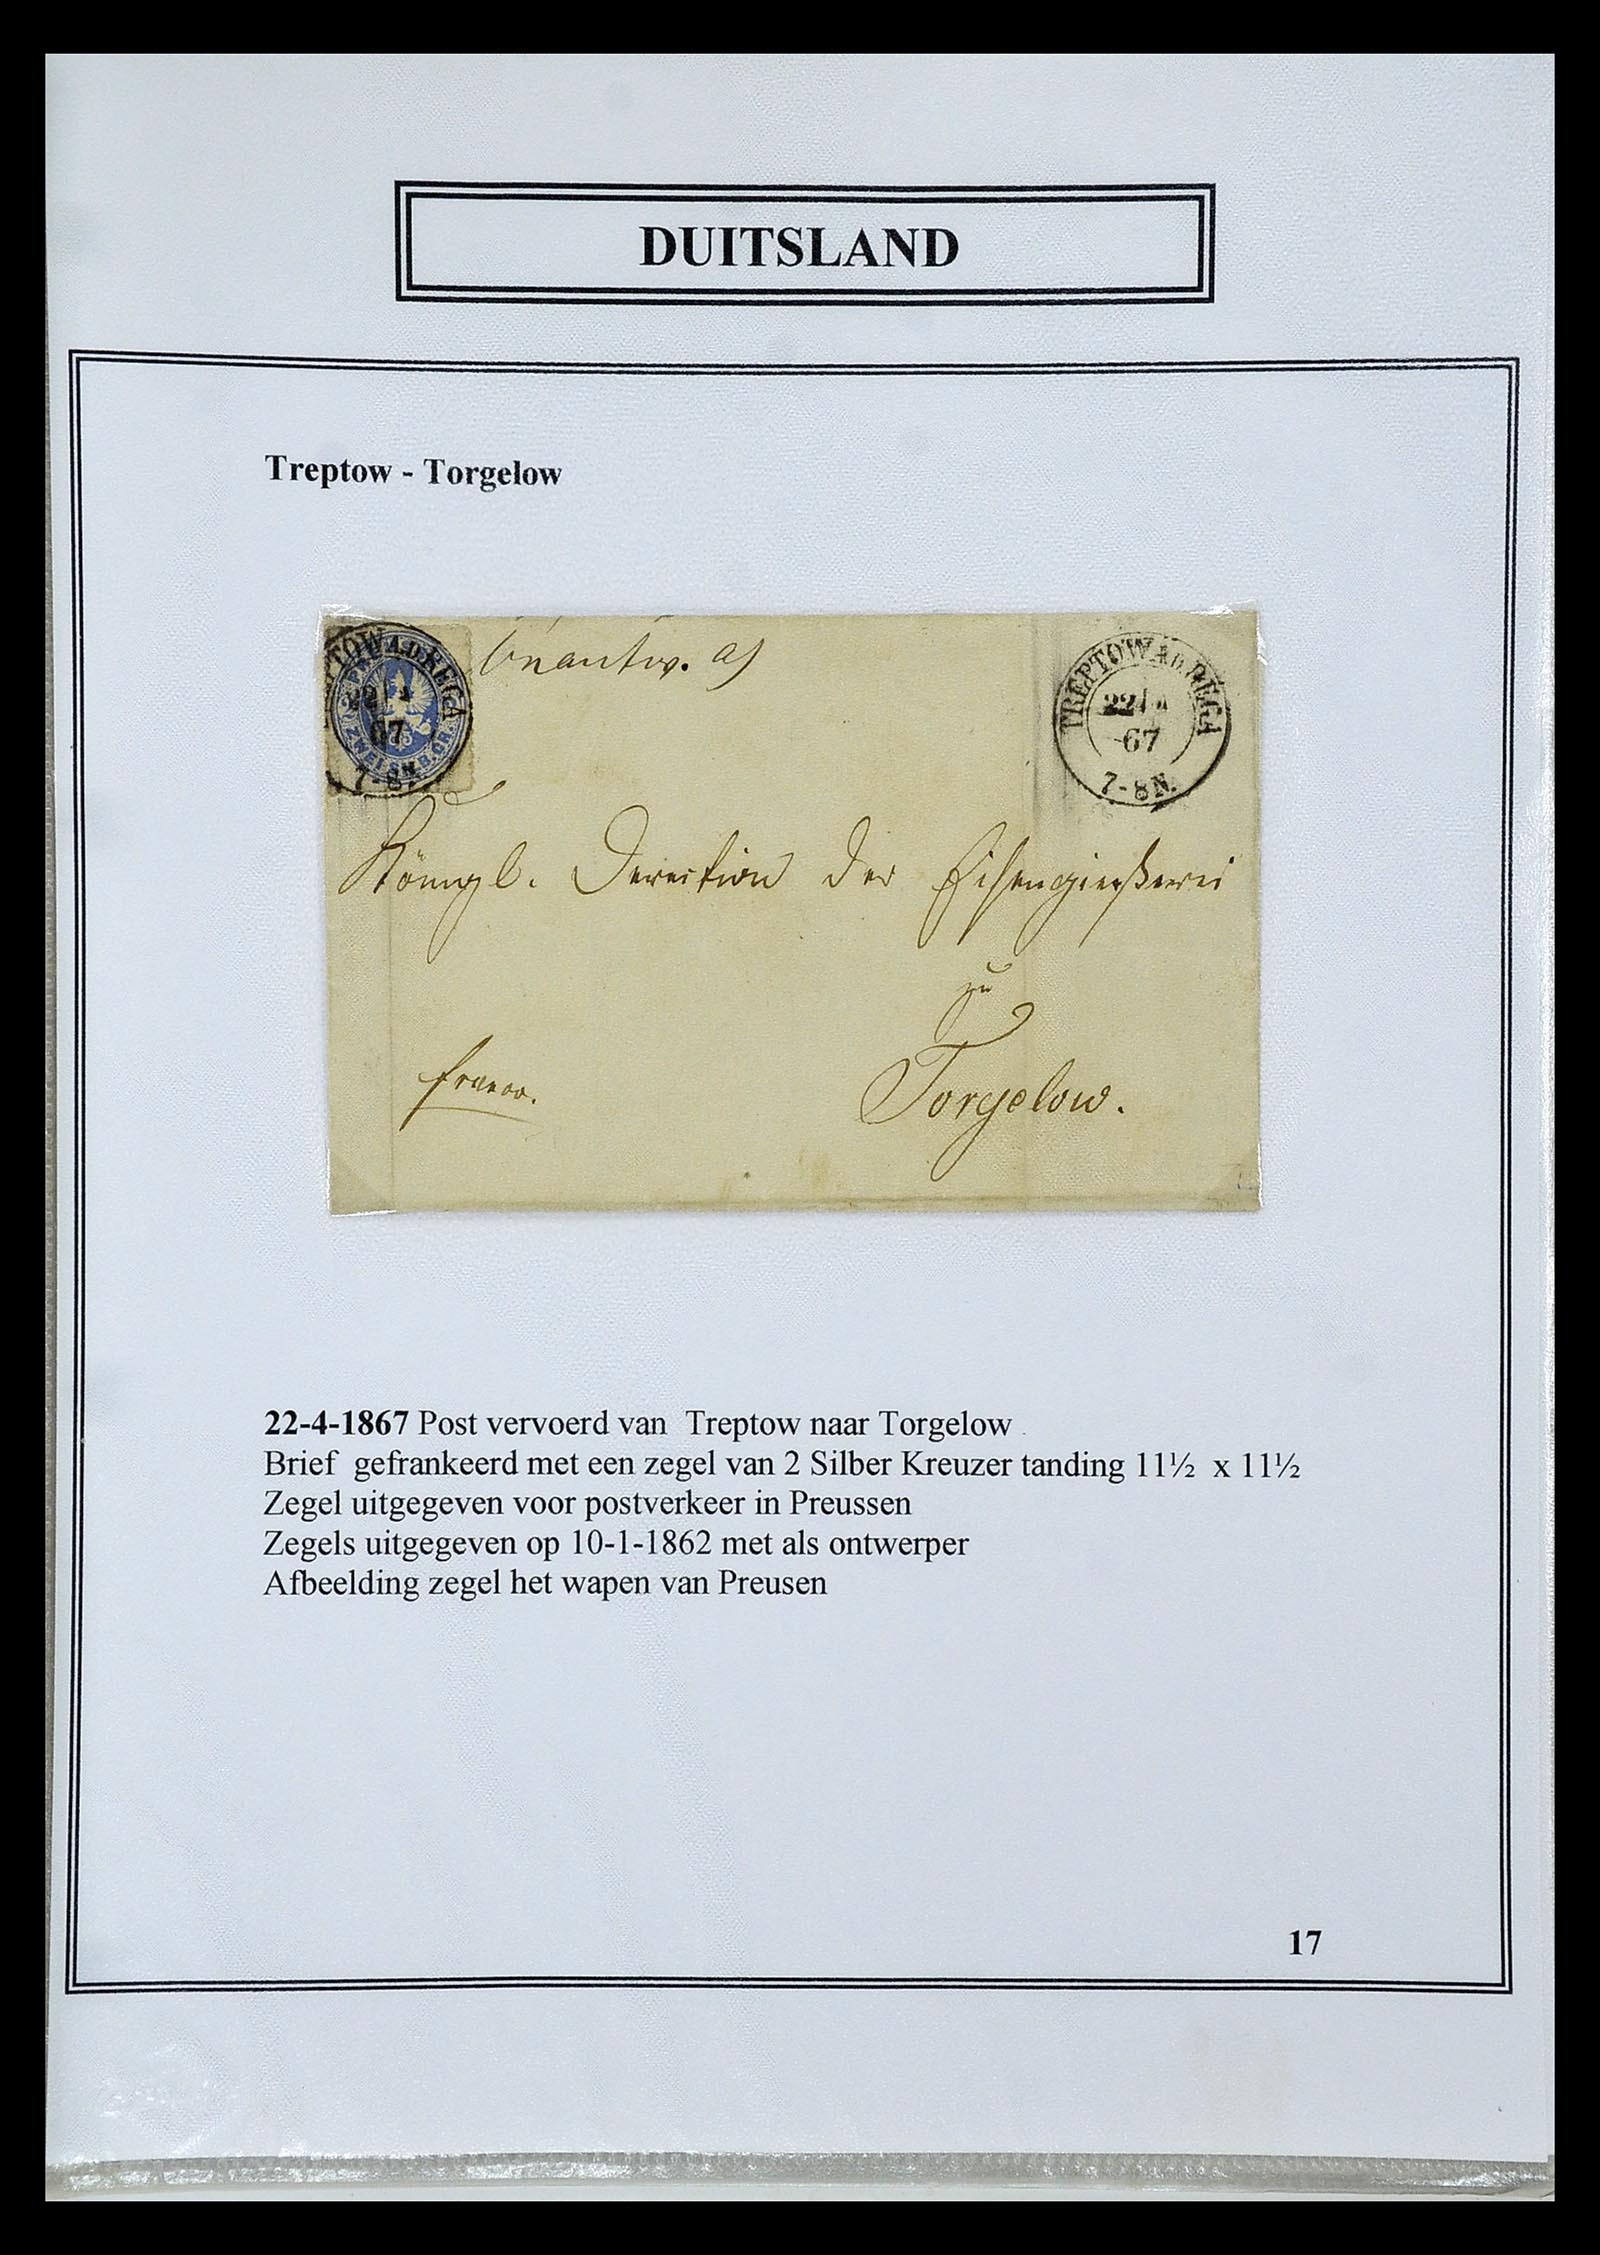 DUITSLAND
Treptow - Torgelow
TREPTOW A.D. REGA
22/4
67
7-8N.
ZWEI SILB. GR.
Königl. Direction der Eisengießerei
zu
Torgelow.
franco.
22-4-1867 Post vervoerd van Treptow naar Torgelow
Brief gefrankeerd met een zegel van 2 Silber Kreuzer tanding 11½ x 11½
Zegel uitgegeven voor postverkeer in Preussen
Zegels uitgegeven op 10-1-1862 met als ontwerper
Afbeelding zegel het wapen van Preusen
17